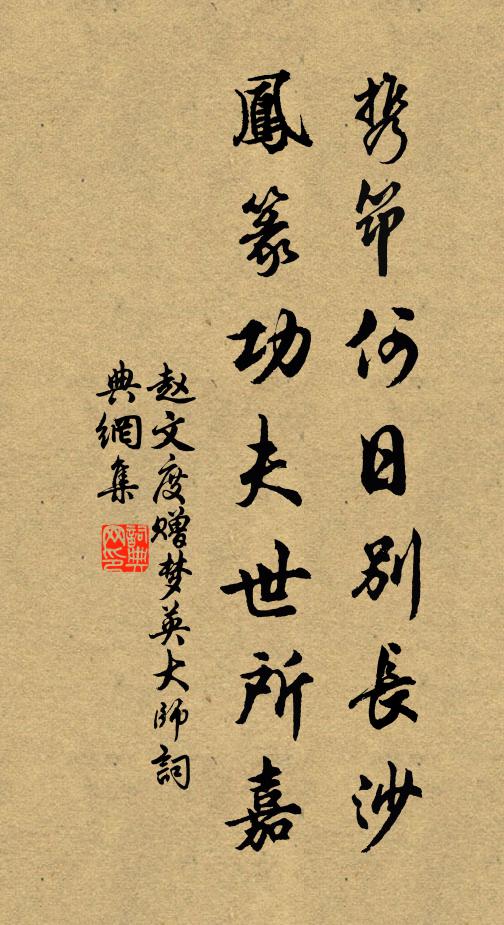 携筇何日別長沙
鳳篆功夫世所嘉
赵文度赠梦英大師詞
典網集
詞典
网印